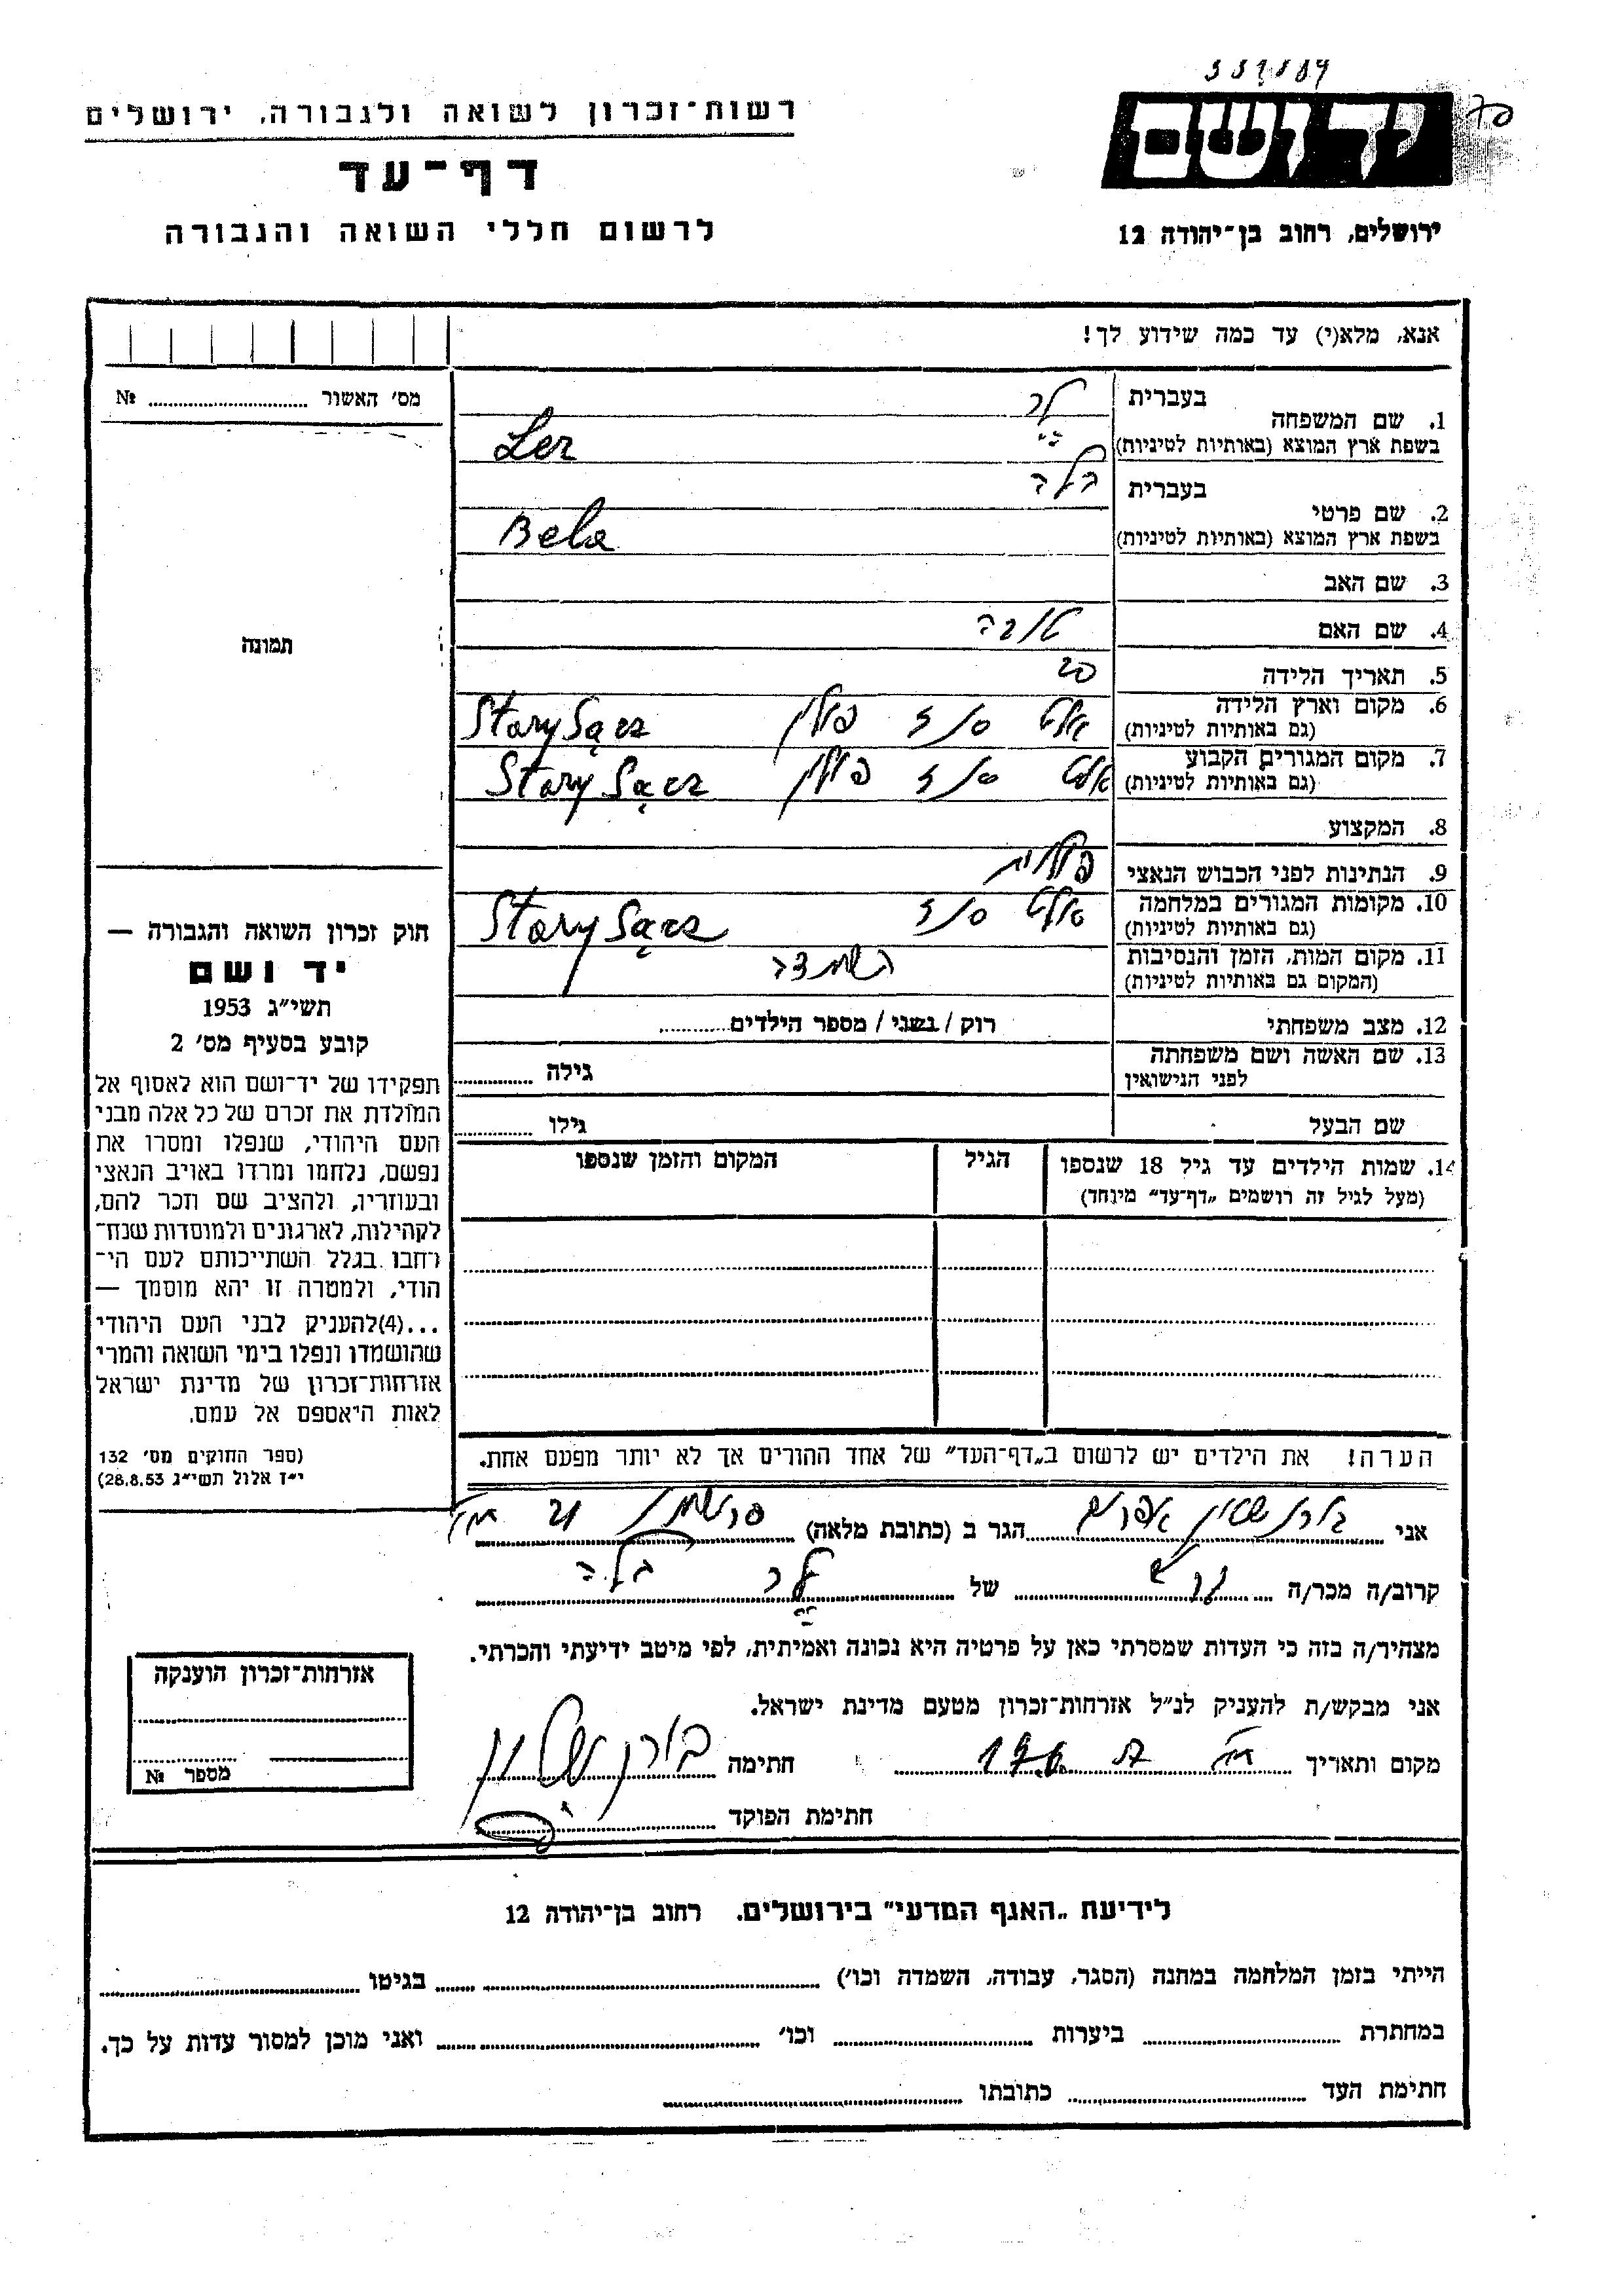 רשות־זכרון לשואה ולגבורה, ירושלים
דף־עד
לרשום חללי השואה והגבורה
יד ושם
ירושלים, רחוב בן־יהודה 12
אנא, מלא(י) עד כמה שידוע לך!
מס' האשור № ........
תמונה
חוק זכרון השואה והגבורה —
יד ושם
תשי״ג 1953
קובע בסעיף מס' 2
תפקידו של יד־ושם הוא לאסוף אל
המולדת את זכרם של כל אלה מבני
העם היהודי, שנפלו ומסרו את
נפשם, נלחמו ומרדו באויב הנאצי
ובעוזריו, ולהציב שם וזכר להם,
לקהילות, לארגונים ולמוסדות שנח־
רחבו בגלל השתייכותם לעם הי־
הודי, ולמטרה זו יהא מוסמך —
...(4)להעניק לבני העם היהודי
שהושמדו ונפלו בימי השואה והמרי
אזרחות־זכרון של מדינת ישראל
לאות היאספם אל עמם.
(ספר החוקים מס' 132
י״ז אלול תשי״ג 28.8.53)
1. שם המשפחה בעברית לר
בשפת ארץ המוצא (באותיות לטיניות) Ler
2. שם פרטי בעברית בלה
בשפת ארץ המוצא (באותיות לטיניות) Bela
3. שם האב
4. שם האם טובה
5. תאריך הלידה 20
6. מקום וארץ הלידה אלט סנז פולין Stary Sącz
(גם באותיות לטיניות)
7. מקום המגורים הקבוע אלט סנז פולין Stary Sącz
(גם באותיות לטיניות)
8. המקצוע
9. הנתינות לפני הכבוש הנאצי פולנית
10. מקומות המגורים במלחמה אלט סנז Stary Sącz
(גם באותיות לטיניות)
11. מקום המות, הזמן והנסיבות השמדה
(המקום גם באותיות לטיניות)
12. מצב משפחתי רוק / נשוי / מספר הילדים........
13. שם האשה ושם משפחתה גילה ........
לפני הנישואין
שם הבעל גילו ........
14. שמות הילדים עד גיל 18 שנספו הגיל המקום והזמן שנספו
(מעל לגיל זה רושמים „דף־עד״ מיוחד)
הערה! את הילדים יש לרשום ב„דף־העד״ של אחד ההורים אך לא יותר מפעם אחת.
אני בורנשטין אפרים הגר ב (כתובת מלאה)
קרוב/ה מכר/ה של לר בלה
מצהיר/ה בזה כי העדות שמסרתי כאן על פרטיה היא נכונה ואמיתית, לפי מיטב ידיעתי והכרתי.
אני מבקש/ת להעניק לנ״ל אזרחות־זכרון מטעם מדינת ישראל.
מקום ותאריך חתימה בורנשטין
חתימת הפוקד
אזרחות־זכרון הוענקה
מספר №
לידיעת „האגף המדעי״ בירושלים, רחוב בן־יהודה 12
הייתי בזמן המלחמה במחנה (הסגר, עבודה, השמדה וכו') ........ בגיטו ........
במחתרת ........ ביערות ........ וכו' ........ ואני מוכן למסור עדות על כך.
חתימת העד ........ כתובתו ........